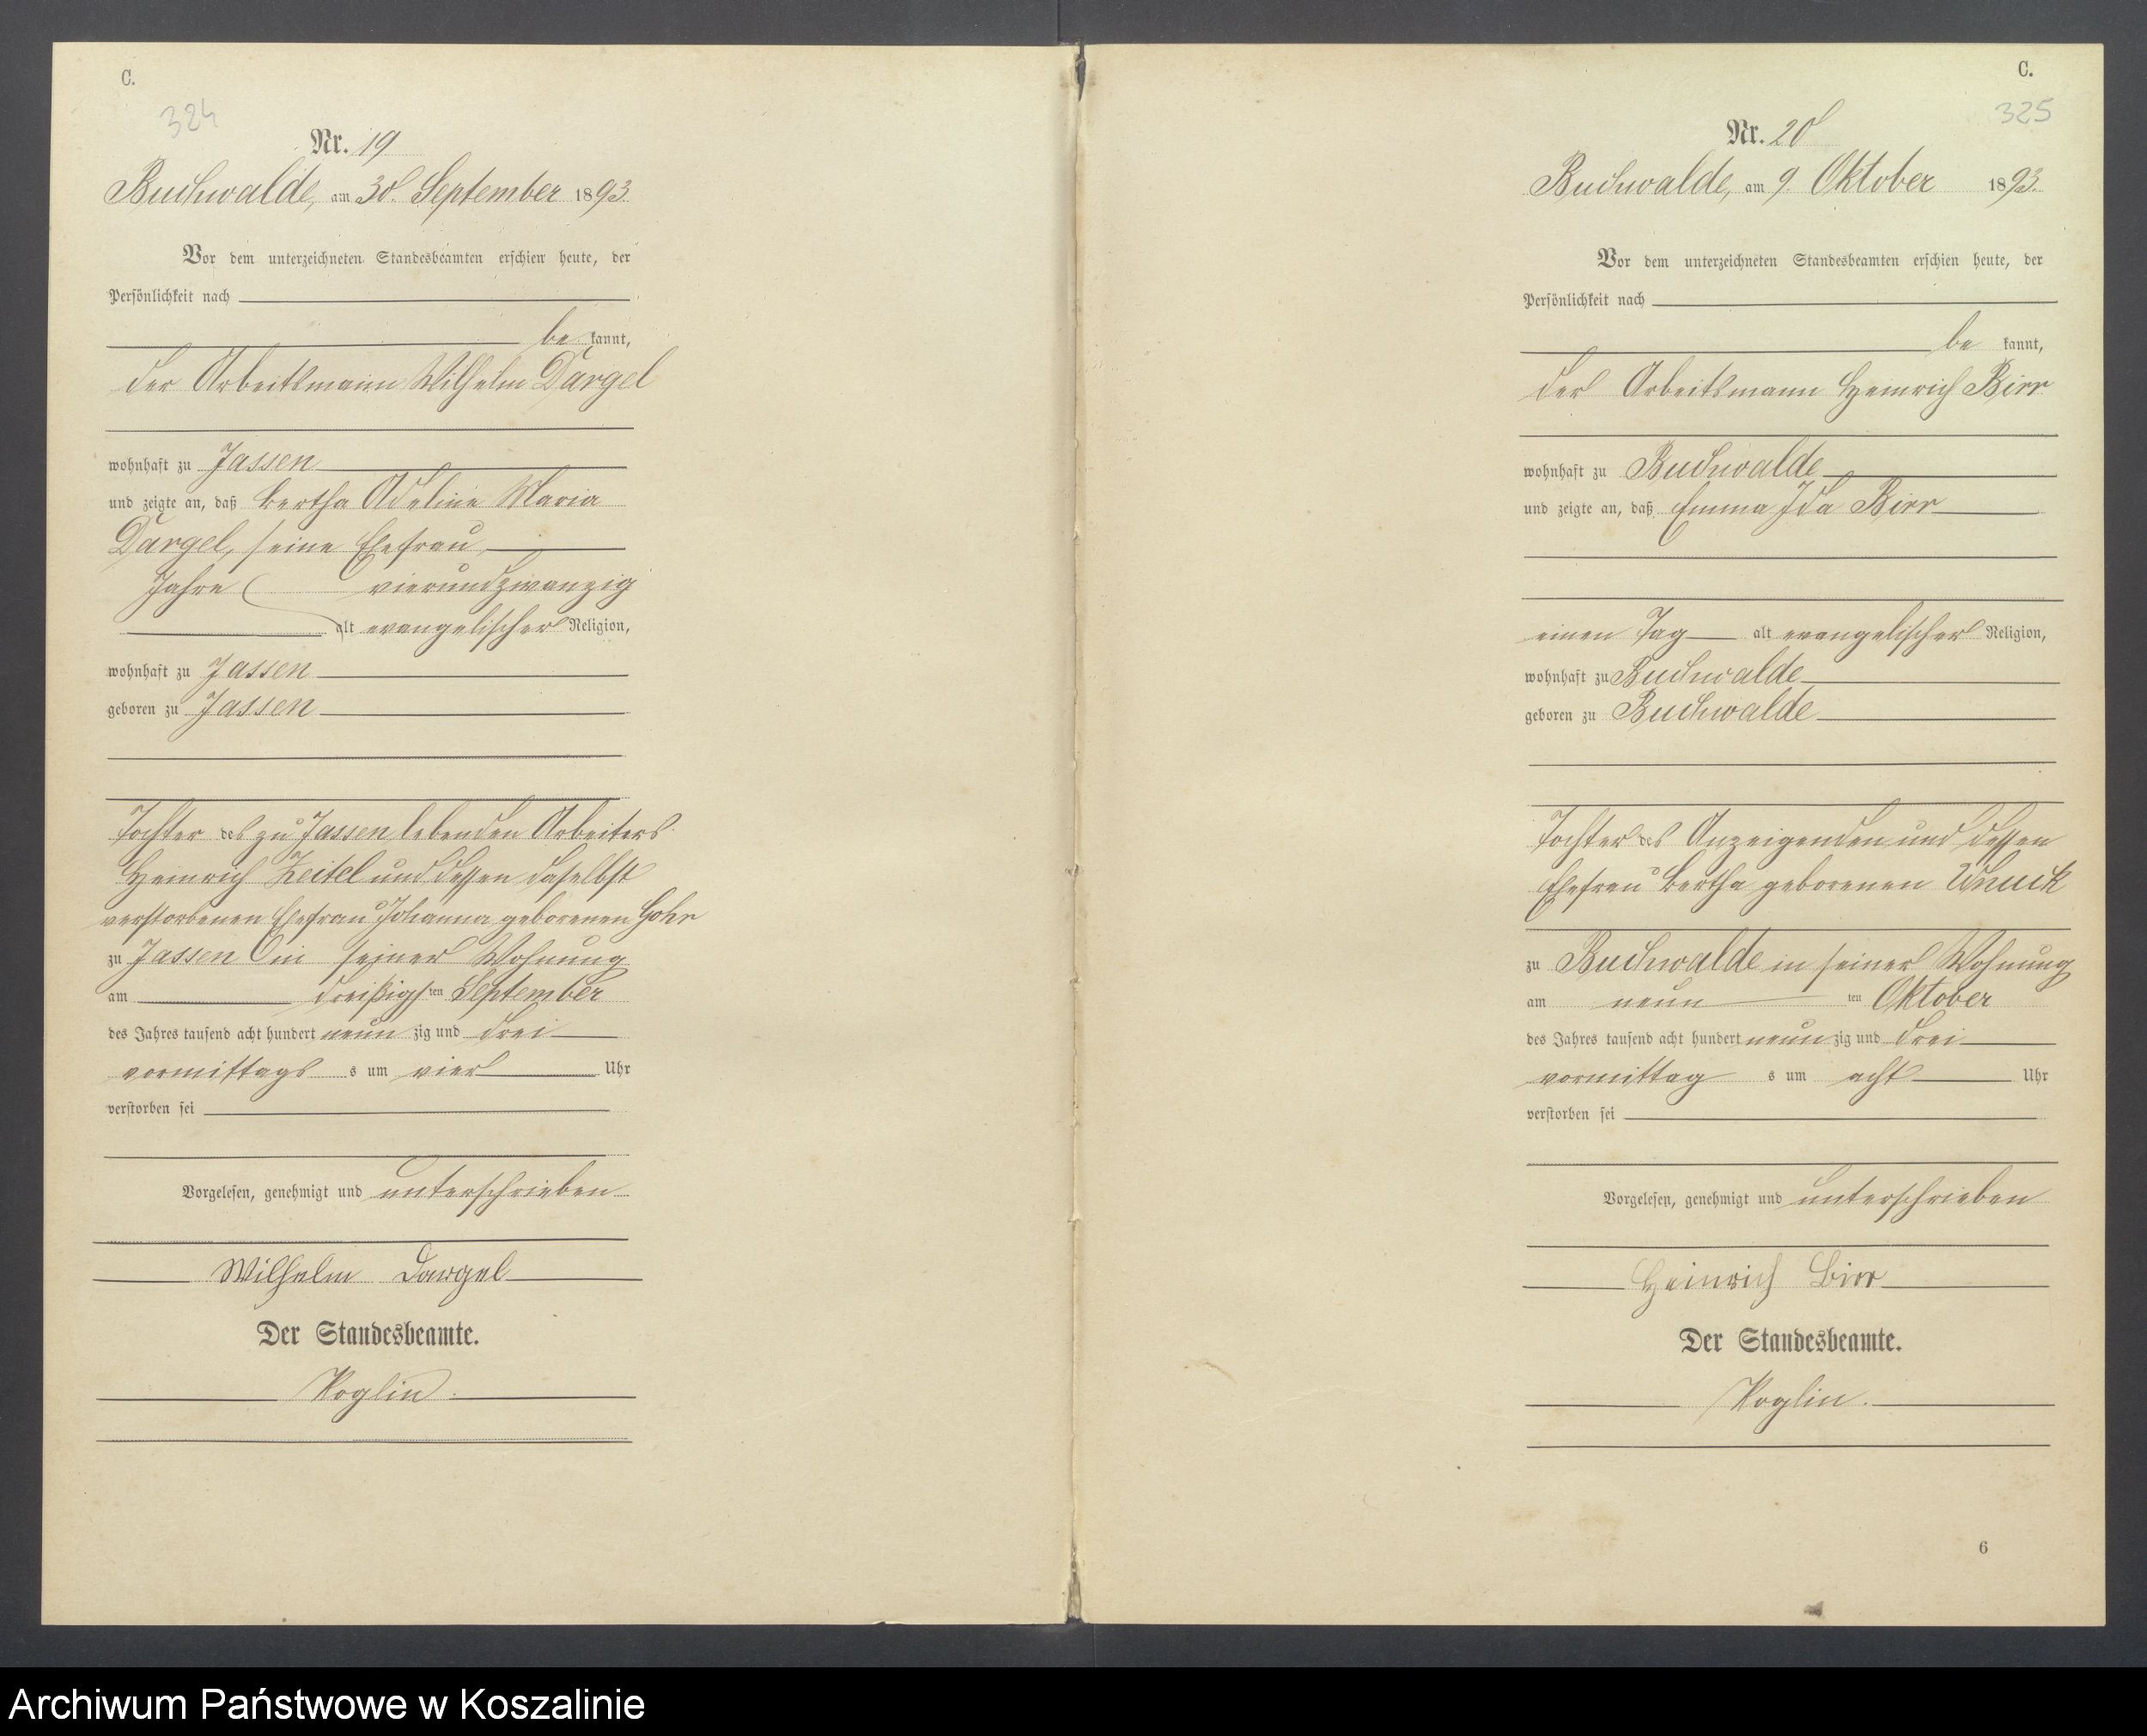 C.
324
Nr. 19
Buchwalde, am 30. September 1893.
Vor dem unterzeichneten Standesbeamten erschien heute, der
Persönlichkeit nach
be kannt,
der Arbeitsmann Wilhelm Dargel
wohnhaft zu Jassen
und zeigte an, daß Bertha Adeline Maria
Dargel, seine Ehefrau,
Jahre vierundzwanzig
alt evangelischer Religion,
wohnhaft zu Jassen
geboren zu Jassen
Tochter des zu Jassen lebenden Arbeiters
Heinrich Zeitel und dessen daselbst
verstorbenen Ehefrau Johanna geborenen Gohr
zu Jassen in seiner Wohnung
am dreißigsten September
des Jahres tausend acht hundert neunzig und drei
vormittags s um vier Uhr
verstorben sei
Vorgelesen, genehmigt und unterschrieben
Wilhelm Dargel
Der Standesbeamte.
Koglin.
C.
325
Nr. 20
Buchwalde, am 9. Oktober 1893.
Vor dem unterzeichneten Standesbeamten erschien heute, der
Persönlichkeit nach
be kannt,
der Arbeitsmann Heinrich Birr
wohnhaft zu Buchwalde
und zeigte an, daß Emma Ida Birr
einen Tag alt evangelischer Religion,
wohnhaft zu Buchwalde
geboren zu Buchwalde
Tochter des Anzeigenden und dessen
Ehefrau Bertha geborenen Unuck
zu Buchwalde in seiner Wohnung
am neunten Oktober
des Jahres tausend acht hundert neunzig und drei
vormittag s um acht Uhr
verstorben sei
Vorgelesen, genehmigt und unterschrieben
Heinrich Birr
Der Standesbeamte.
Koglin.
6
Archiwum Państwowe w Koszalinie